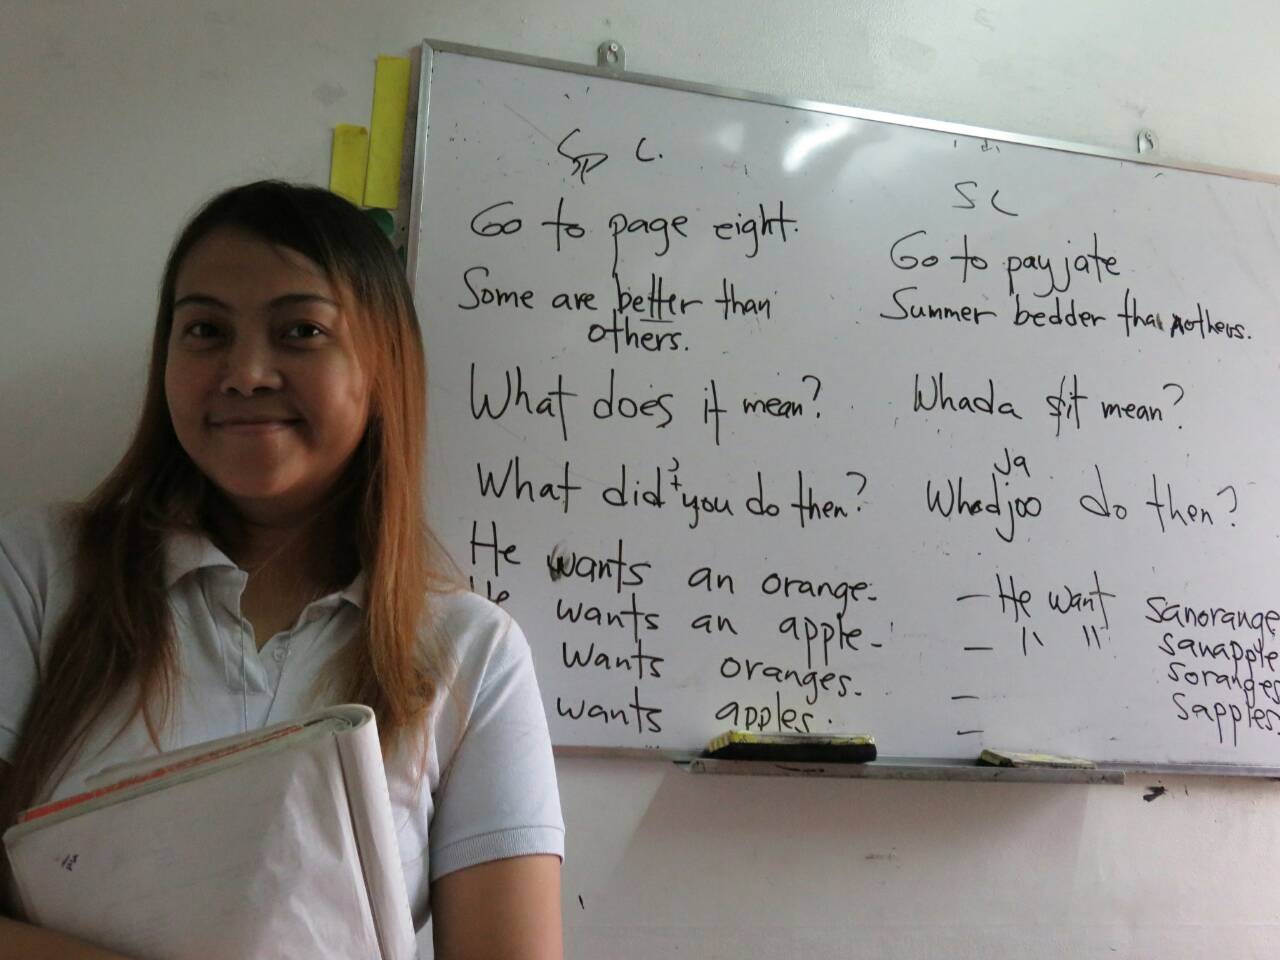 Sp C.
Go to page eight.
Some are better than
others.
What does it mean?
What did you do then?
He wants an orange.
He wants an apple.
wants oranges.
wants apples.
SC
Go to payjate
Summer bedder than nothers.
Whada sit mean?
ja
Whadjoo do then?
— He want sanorange
— " " sanapple
— soranges
— sapples.